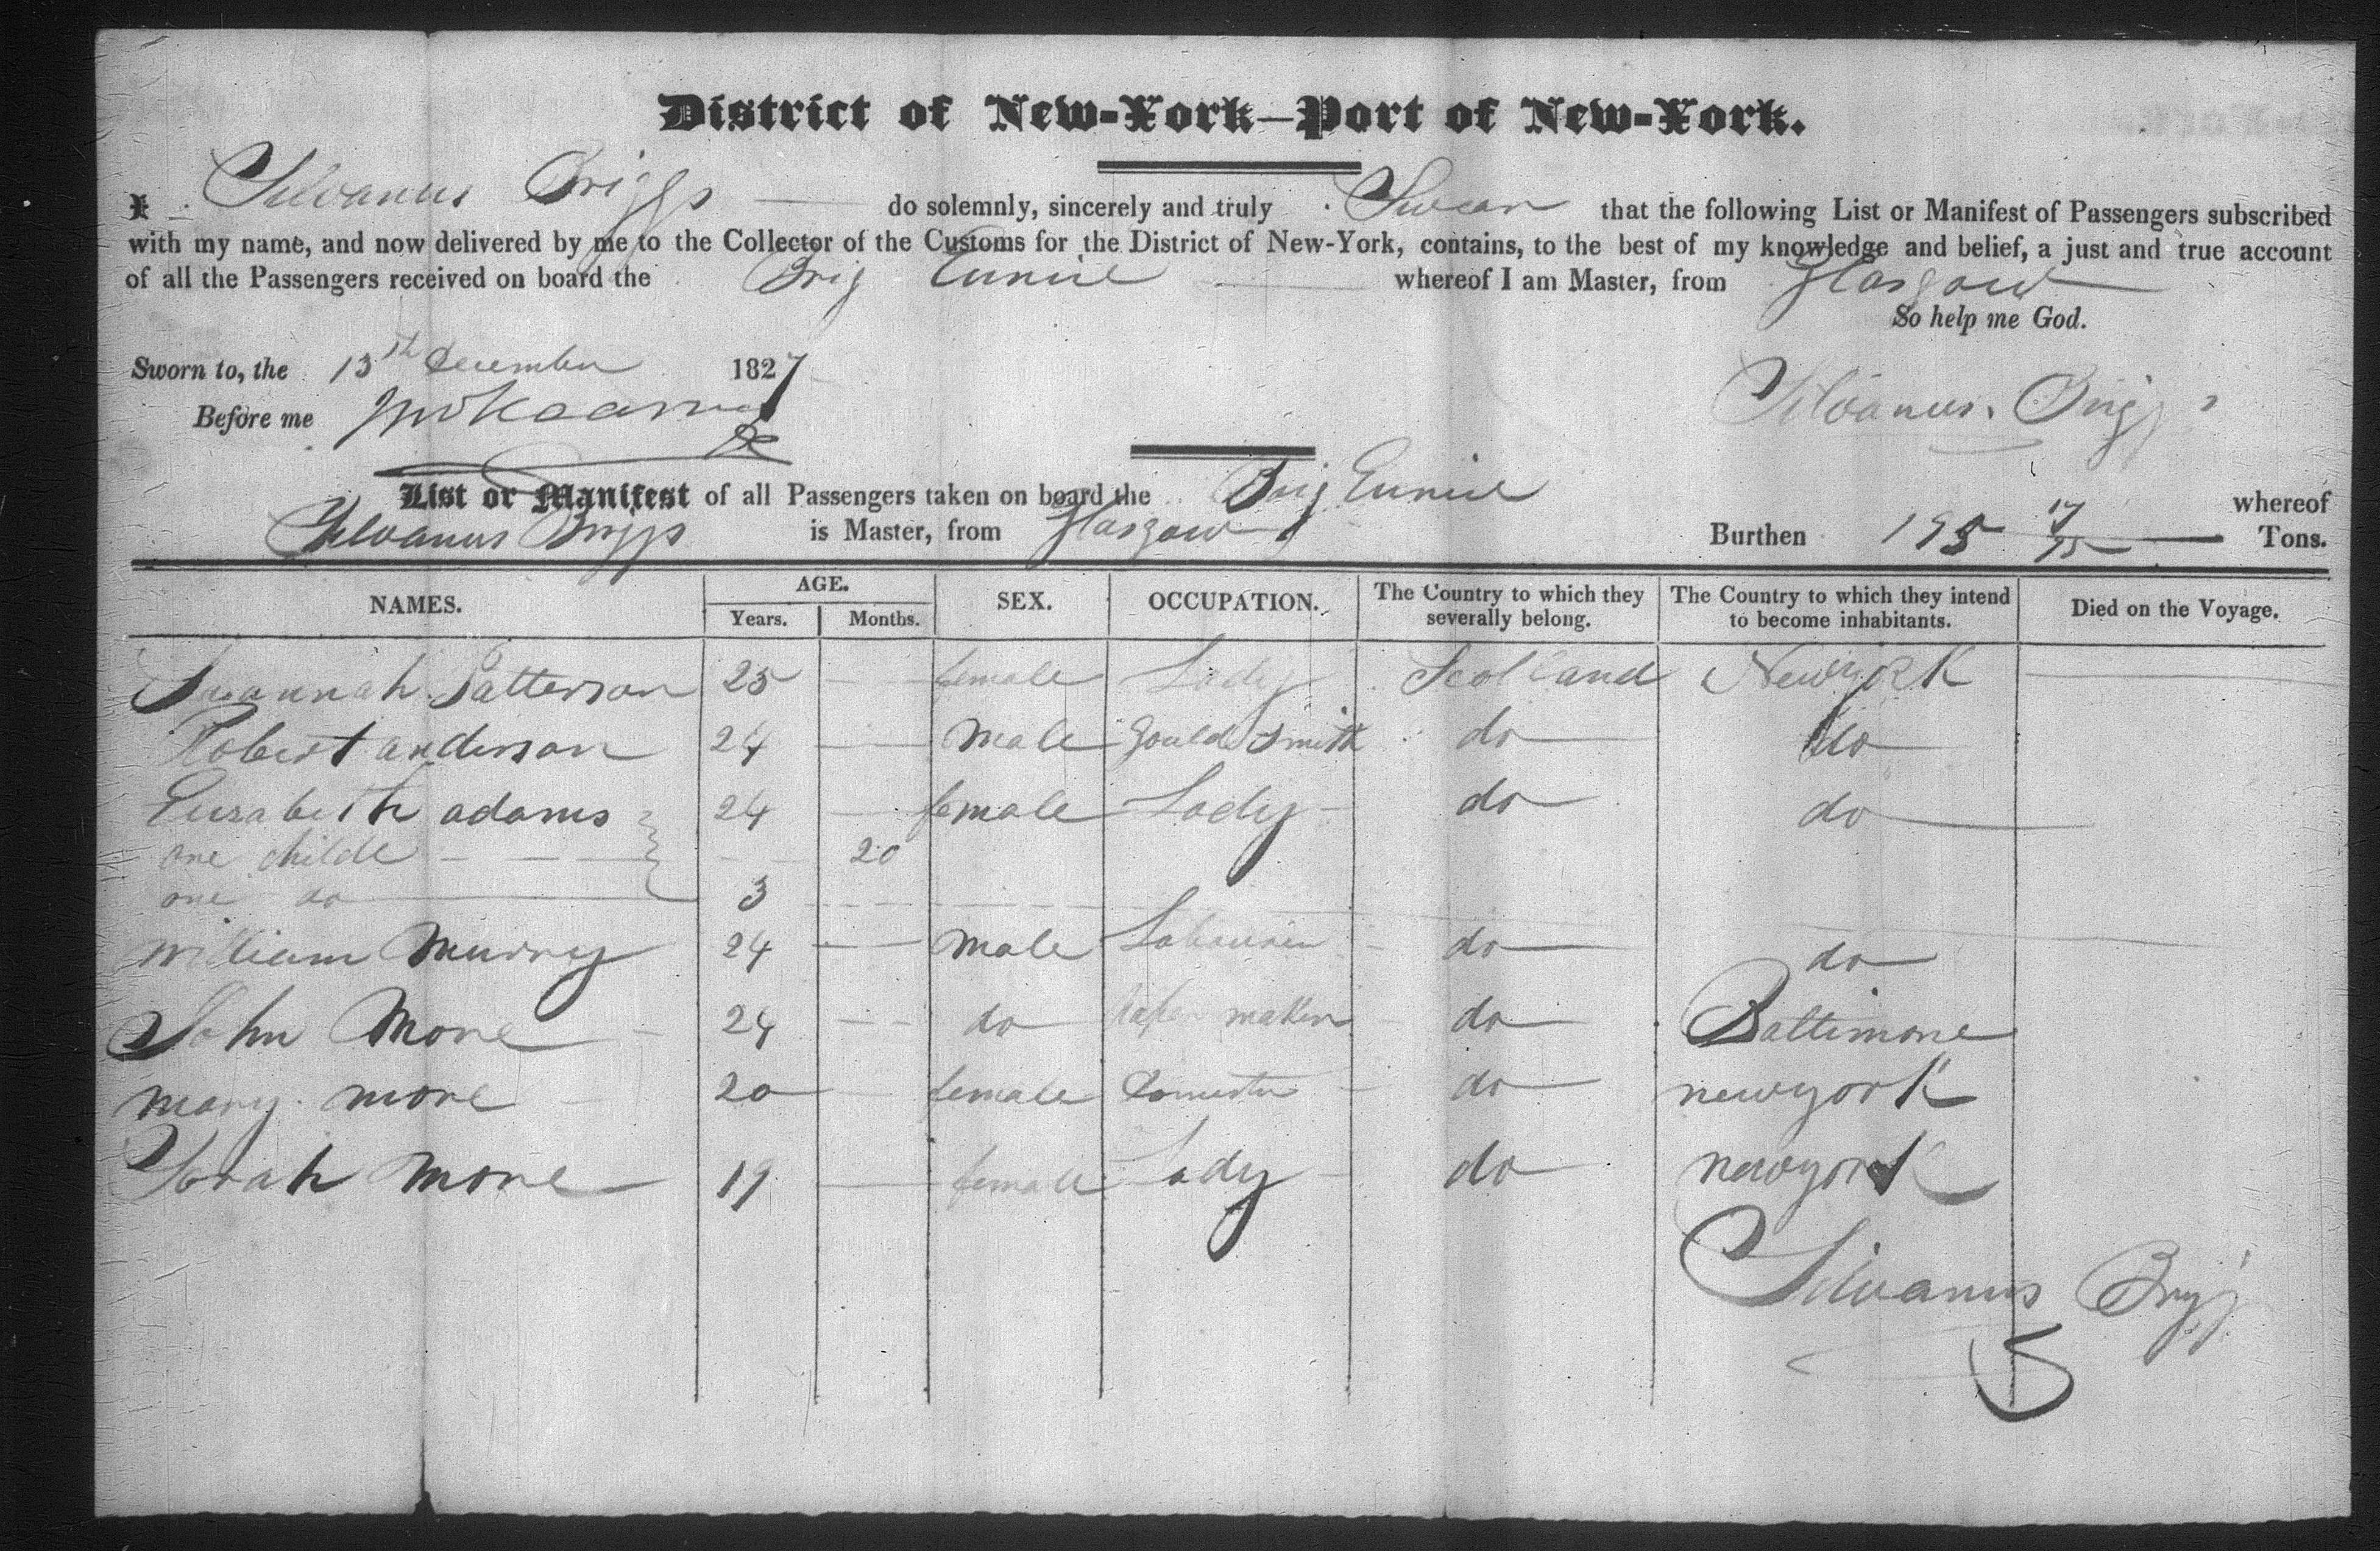 District of New-York—Port of New-York.
I Silvanus Briggs do solemnly, sincerely and truly Swear that the following List or Manifest of Passengers subscribed
with my name, and now delivered by me to the Collector of the Customs for the District of New-York, contains, to the best of my knowledge and belief, a just and true account
of all the Passengers received on board the Brig Eunice whereof I am Master, from Glasgow
So help me God.
Sworn to, the 13th December 1827
Before me
Silvanus Briggs
List or Manifest of all Passengers taken on board the Brig Eunice whereof
Silvanus Briggs is Master, from Glasgow Burthen 195 17/95 Tons.
NAMES. AGE. Years. Months. SEX. OCCUPATION. The Country to which they severally belong. The Country to which they intend to become inhabitants. Died on the Voyage.
Susannah Patterson 25 female Lady Scotland Newyork
Robert anderson 24 male Goulds Smith do do
Elizabeth adams 24 female Lady do do
one childe 20
one do 3
William Murray 24 male Labourer do do
John More 24 do Paper maker do Baltimore
mary more 20 female Domestic do newyork
Sarah More 19 female Lady do newyork
Silvanus Briggs
5